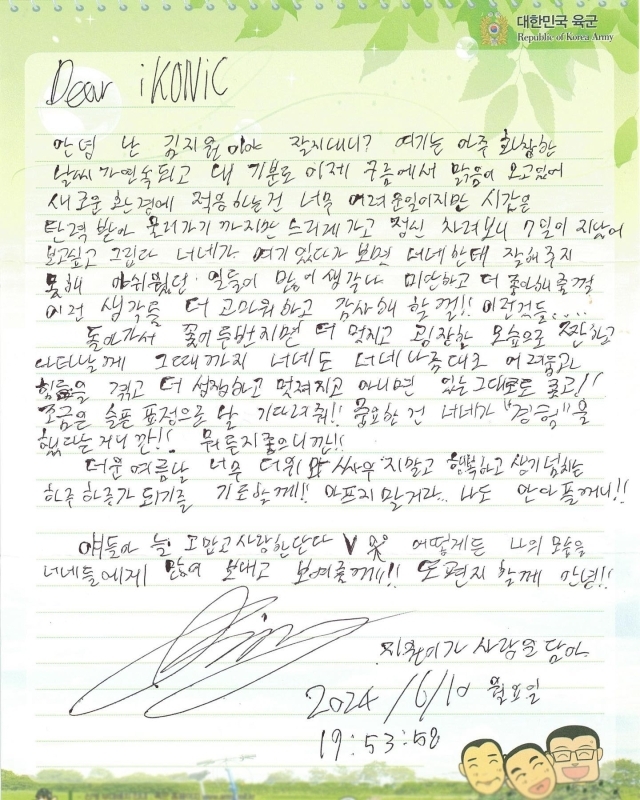 대한민국 육군
Republic of Korea Army
Dear iKONIC
안녕 난 김지원이야 잘지내니? 여기는 아주 화창한
날씨가 연속되고 내 기분도 이제 구름에서 맑음이 오고있어
새로운 환경에 적응하는건 너무 어려운일이지만 시간은
탄력 받아 물러가기 까지만 느리게가고 정신 차려보니 7일이 지났어
보고싶고 그립다 너네가 여기 있다가 보면 너네한테 잘해주지
못해 아쉬웠던 일들이 많이 생각나 미안하고 더 좋아해줄걸
이런 생각들 더 고마워하고 감사해 할껄!! 이런것들....
돌아가서 꽃이 두번지면 더 멋지고 굉장한 모습으로 짠하고
나타날게 그때까지 너네도 너네 나름대로 어려움과
힘듦을 겪고 더 성장하고 멋져지고 아니면 있는그대로도 좋고!!
조금은 슬픈 표정으로 날 기다려줘!! 중요한 건 너네가 "경험"을
했다는거니깐!! 뭐든지좋으니깐!!
더운여름날 너무 더위와 싸우지말고 행복하고 생기넘치는
하루하루가 되기를 기도할게!! 아프지말거라.. 나도 안아플께니!!
얘들아 늘 고맙고 사랑한단다 V 어떻게든 나의 모습을
너네들에게 많이 보내고 보여줄께!! 또편지 할께 안녕!!
지원이가 사랑을 담아
2024 /6/10 월요일
19:53:58